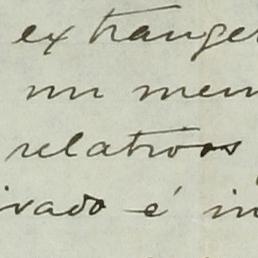 extranger
un mem
relativos
ivado é in